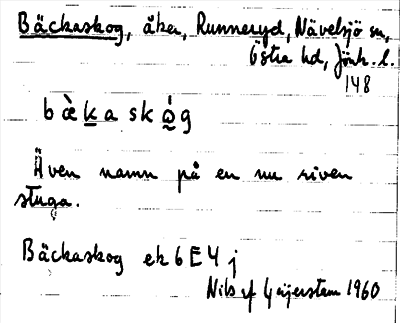 Bäckaskog, åker, Runneryd, Nävelsjö sn,
Östra hd, Jönk. l.
148
b æ̀ k̲ a s k ǫ́ g
Även namn på en nu riven
stuga.
Bäckaskog ek 6 E 4 j
Nils af Geijerstam 1960